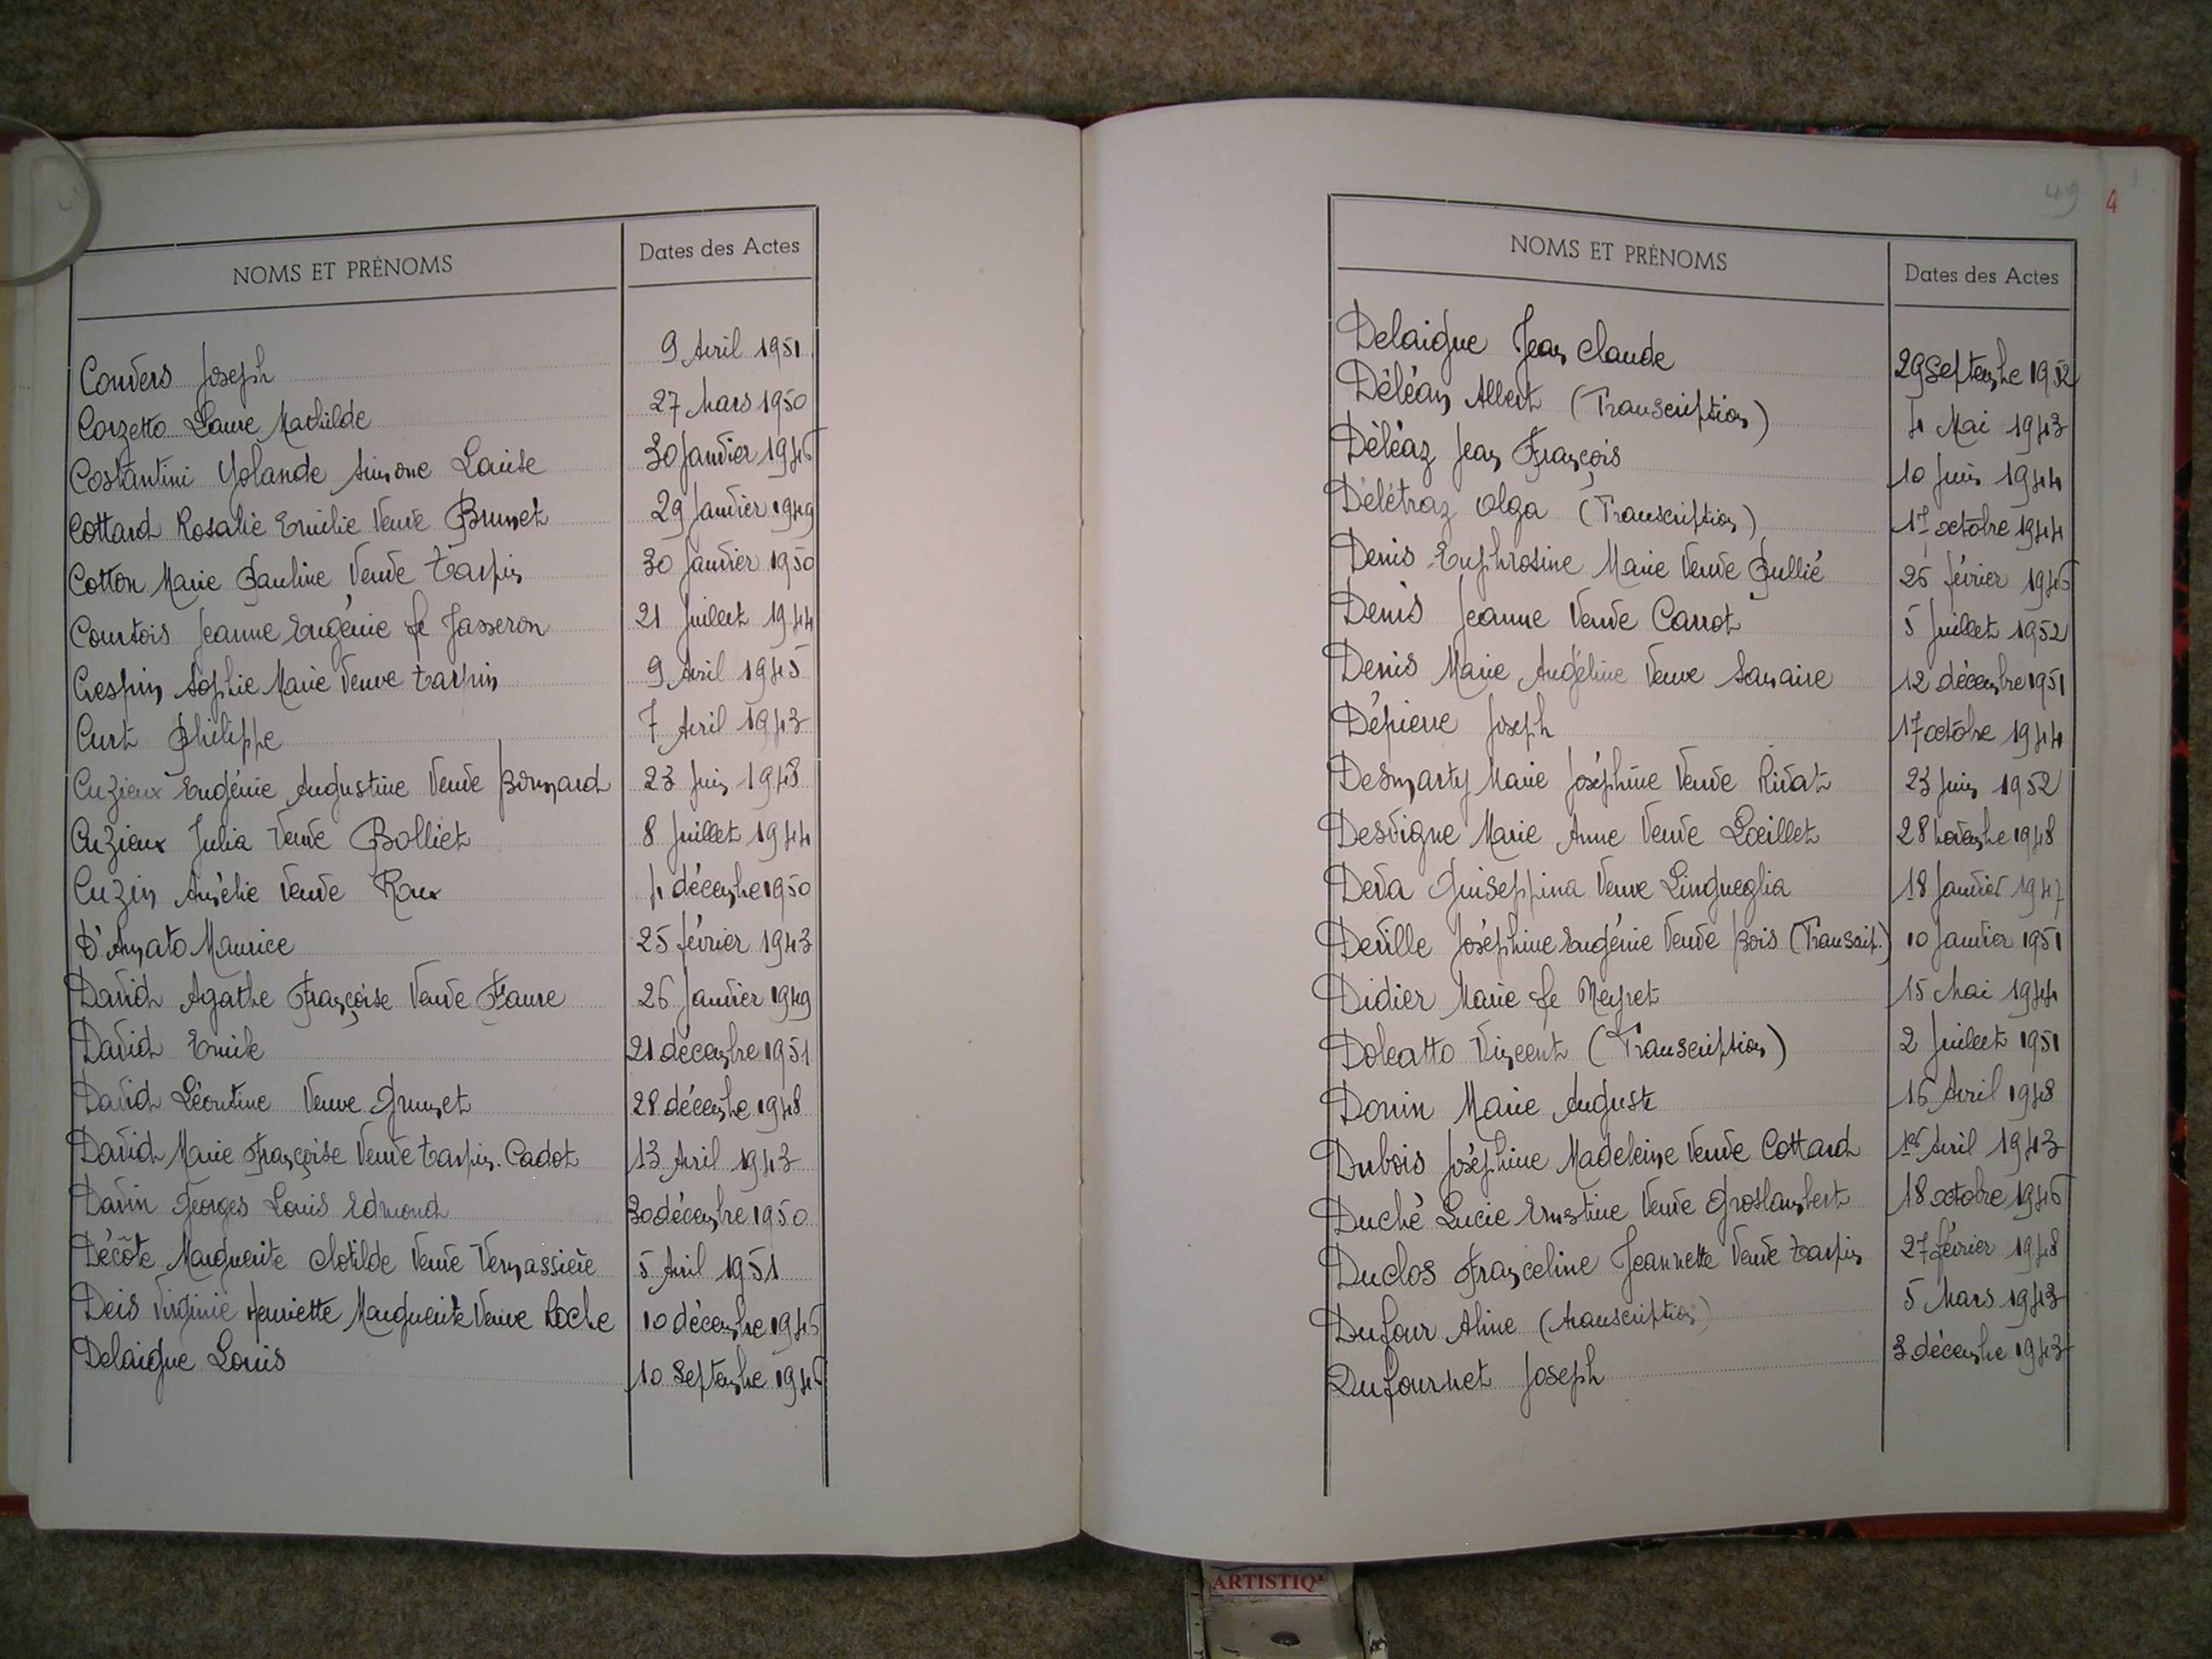 NOMS ET PRÉNOMS Dates des Actes
Convers Joseph 9 Avril 1951
Corzetto Laure Mathilde 27 Mars 1950
Costantini Yolande Simone Louise 30 Janvier 1946
Cottard Rosalie Emilie Veuve Brunet 29 Janvier 1949
Cotton Marie Pauline Veuve Tarpin 30 Janvier 1950
Courtois Jeanne Eugénie fe Jasseron 21 Juillet 1944
Crespin Sophie Marie Veuve Tarpin 9 Avril 1945
Curt Philippe 7 Avril 1943
Cuzieux Eugénie Augustine Veuve Bornard 23 Juin 1948
Cuzieux Julia Veuve Bolliet 8 Juillet 1944
Cuzin Amélie Veuve Roux 4 décembre 1950
D'Amato Maurice 25 février 1943
David Agathe Françoise Veuve Faure 26 Janvier 1949
David Emile 21 décembre 1951
David Léontine Veuve Grumet 28 décembre 1948
David Marie Françoise Veuve Tarpin-Cadot 13 Avril 1943
Davin Georges Louis Edmond 30 décembre 1950
Décôte Marguerite Clotilde Veuve Vernassière 5 Avril 1951
Deis Virginie Henriette Marguerite Veuve Roche 10 décembre 1946
Delaigue Louis 10 Septembre 1946
49 4
NOMS ET PRÉNOMS Dates des Actes
Delaigue Jean Claude 29 Septembre 1952
Déléan Albert (Transcription) 4 Mai 1943
Déléaz Jean François 10 Juin 1944
Délétraz Olga (Transcription) 17 octobre 1944
Denis Euphrosine Marie Veuve Jullié 26 février 1946
Denis Jeanne Veuve Carrot 5 Juillet 1952
Denis Marie Angéline Veuve Samaire 12 décembre 1951
Dépierre Joseph 17 octobre 1944
Desmarty Marie Joséphine Veuve Rivat 23 Juin 1952
Desvigne Marie Anne Veuve Loeillet 28 novembre 1948
Deva Guiseppina Veuve Lingueglia 18 Janvier 1947
Deville Joséphine Eugénie Veuve Bois (Transcrip.) 10 Janvier 1951
Didier Marie fe Neyret 15 Mai 1944
Doleatto Vincent (Transcription) 2 Juillet 1951
Donin Marie Auguste 16 Avril 1948
Dubois Joséphine Madeleine Veuve Cottard 1er Avril 1943
Duché Lucie Ernestine Veuve Groslambert 18 octobre 1946
Duclos Franceline Jeannette Veuve Tarpin 27 février 1948
Dufour Aline (transcription) 5 Mars 1943
Dufournet Joseph 3 décembre 1943
ARTISTIQ